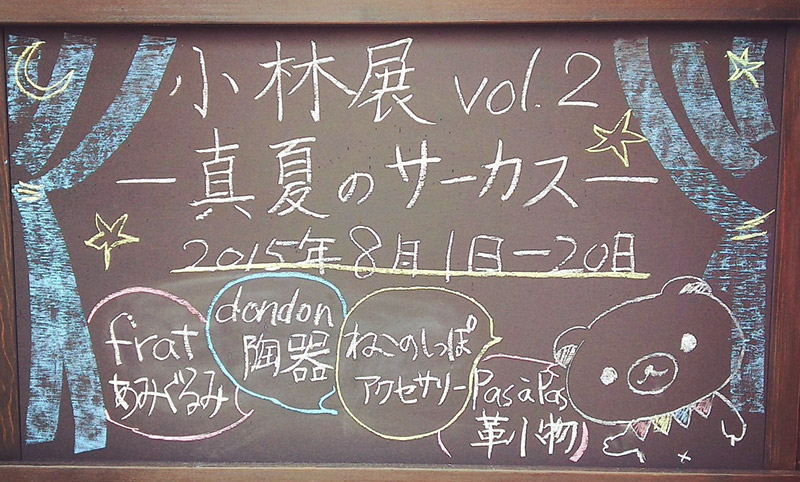 小林展 vol.2
―真夏のサーカス―
2015年8月1日―20日
frat
あみぐるみ
dondon
陶器
ねこのしっぽ
アクセサリー
Pas à Pas
革小物